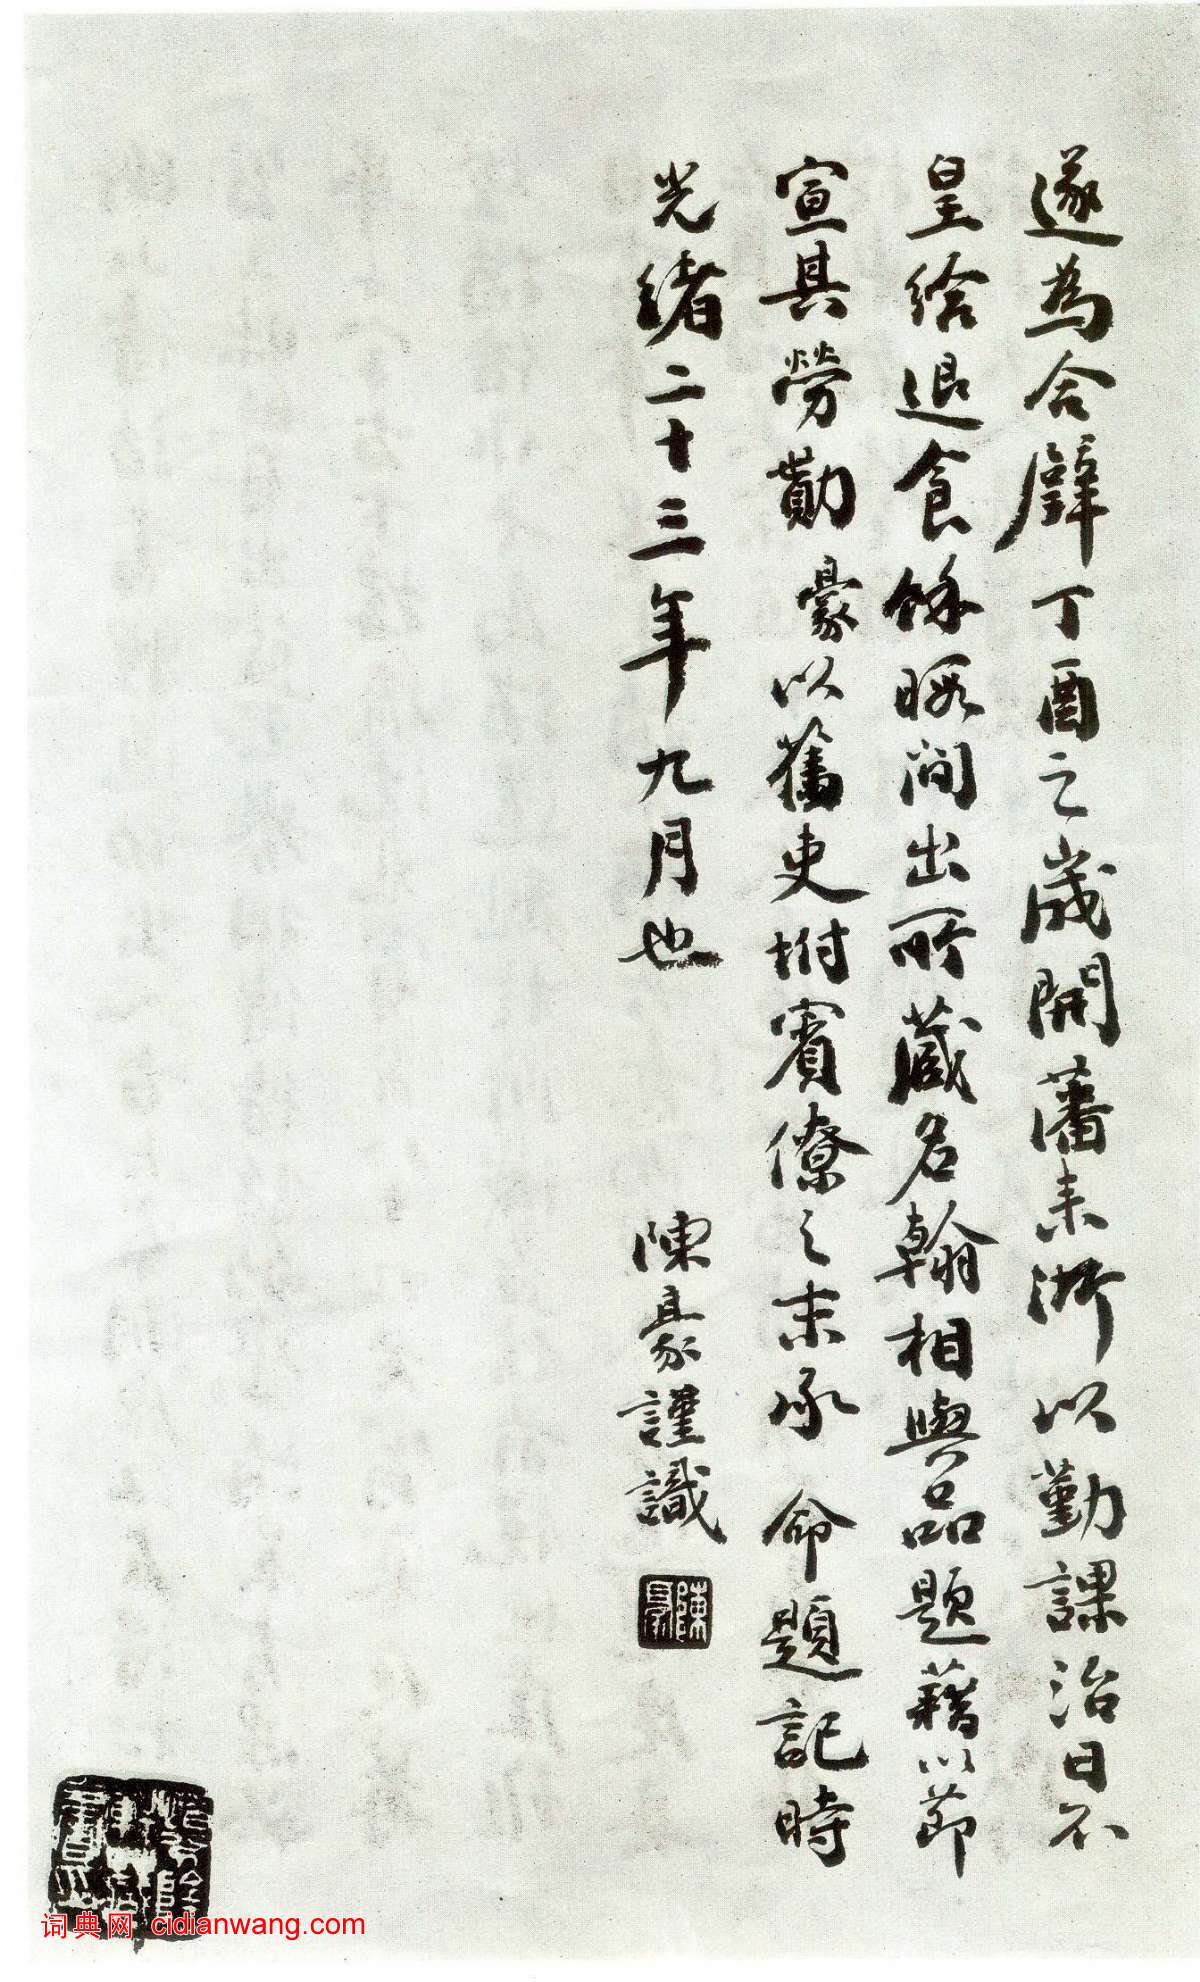 遂為合璧丁酉之歲開藩来浙以勤課治日不
皇給退食餘暇間出所藏名翰相與品題藉以節
宣其勞勩豪以舊吏坿賓僚之末承命題記時
光緒二十三年九月也
陳豪謹識
陳豪
词典网 cidianwang.com